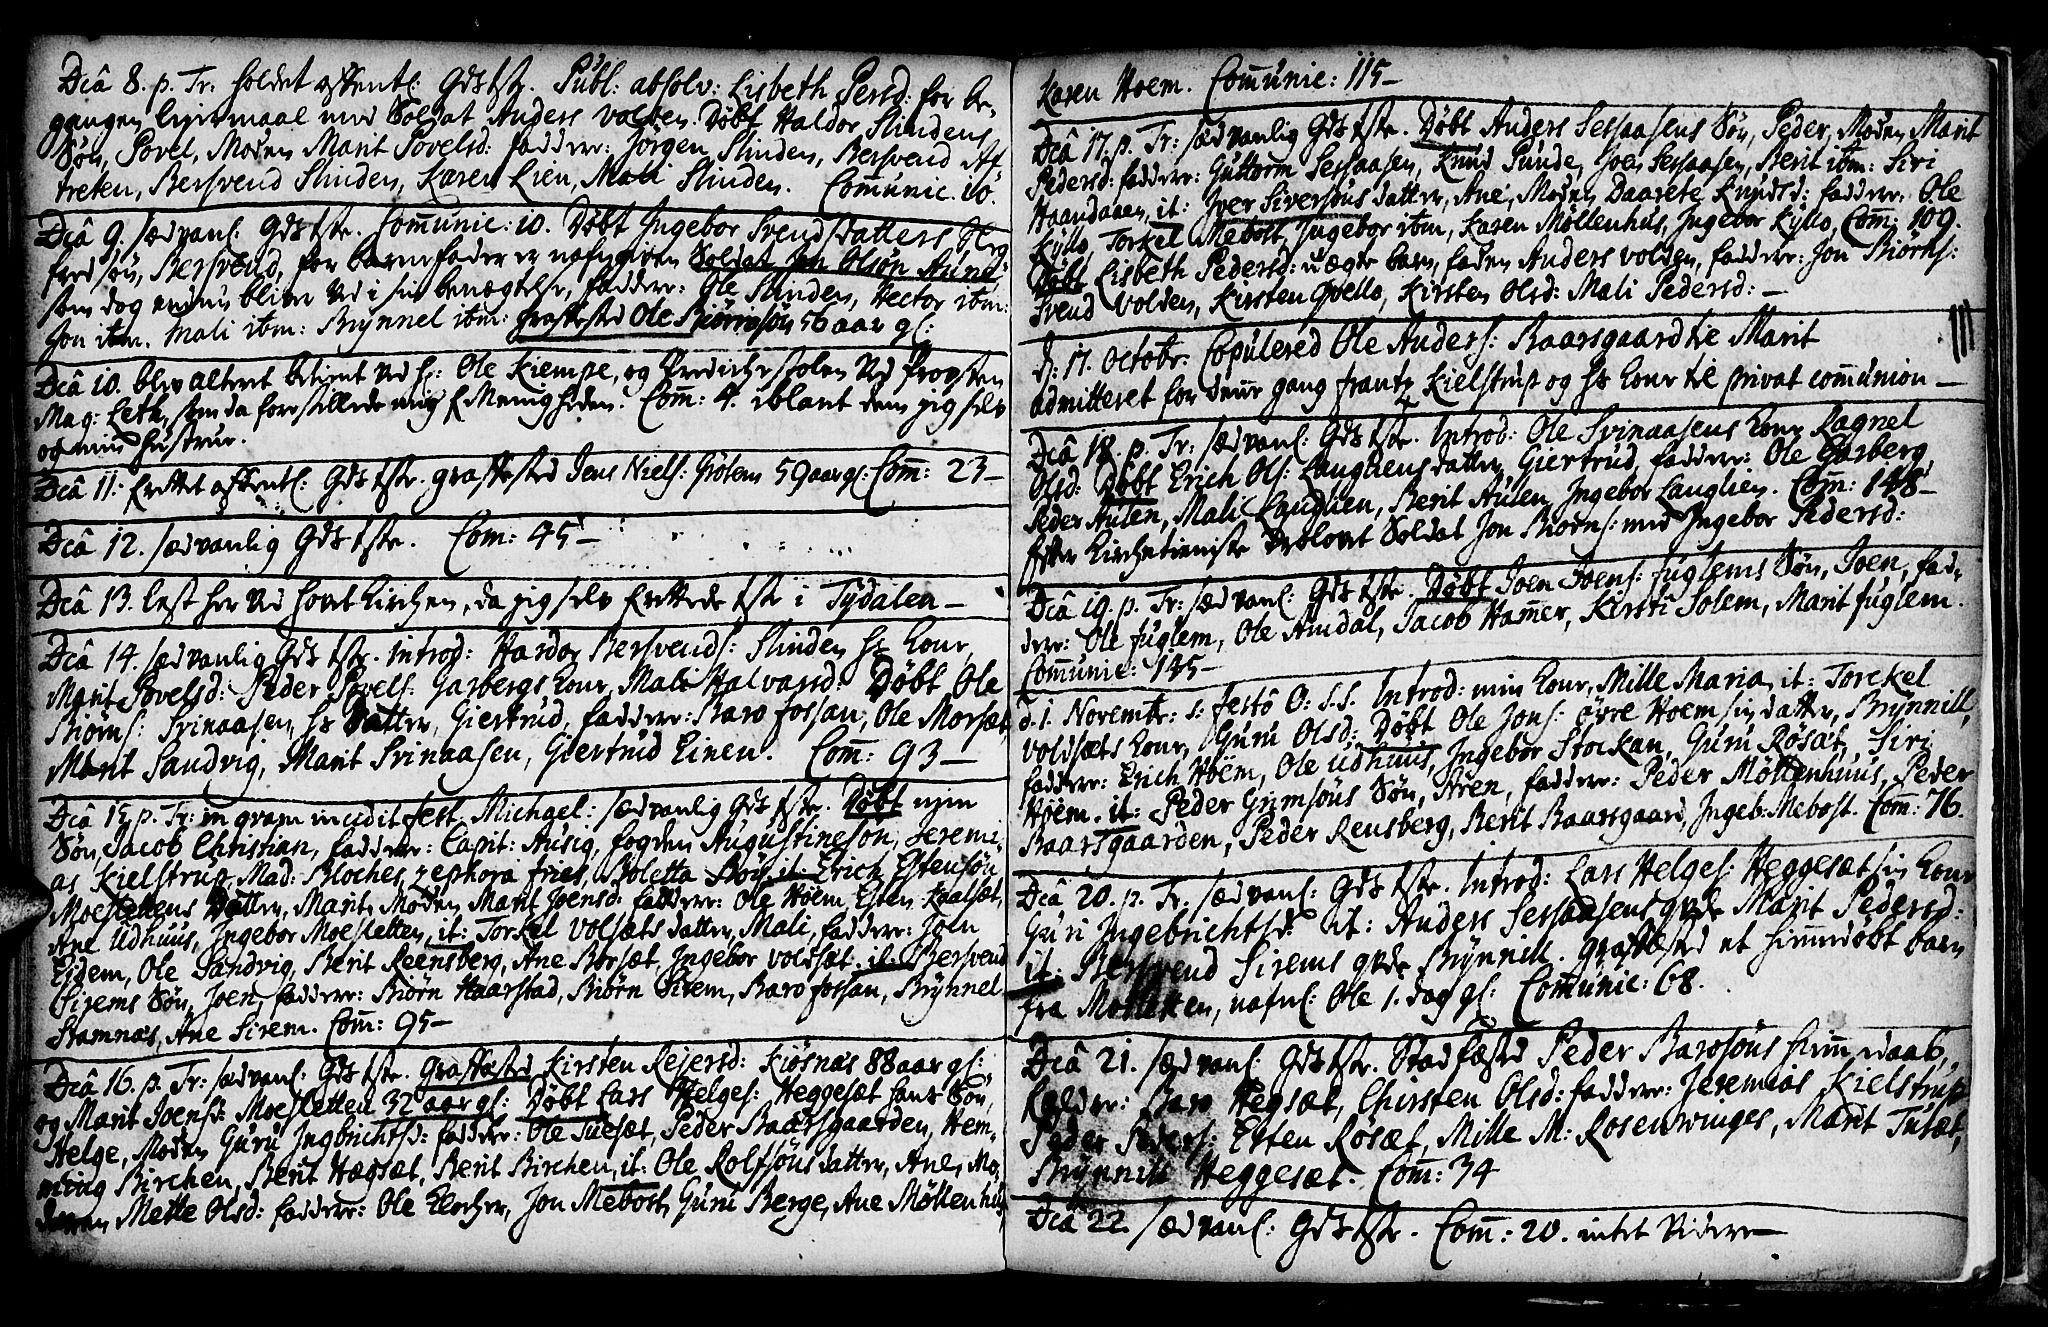 Dcâ 8. p. Tr: holdet offentl: Gdstste. Publ: absolv: Lisbeth Persd: for be-
gangen leiermaal med Soldat Anders Volden. Døbt Haldor Slindens
Søn, Povel, Moden Marit Povelsd: faddere: Jørgen Slinden, Bersvend Af-
treten, Bersvend Slinden, Karen Lien, Mali Slinden. Communic. 10.
Dcâ 9. sædvanl: Gdstste. Communic: 10. Døbt Ingebor Svendsdatters
søn, Bersvend, for barnefader er nafngiven Soldat Jon Olsøn Aune
som dog endnu bliver ved i sin benægtelse, faddere: Ole Slinden, Hector ibm:
Jon ibm. Mali ibm: Brynnel ibm: graffæsted Ole Biørnsøn 56 aar gl:
Dcâ 10. blev alteret betient ved Hr: Ole Kiempe, og Prædickestolen ved Provsten
Mag: Leth, som da forestillede mig f Menigheden. Com: 4. iblant dem jeg selv
og min hustrue.
Dcâ 11: holdet offentl: Gdstste. graffæsted Jens Niels: Grøtem 59 aar gl: Com: 23-
Dcâ 12. sædvanlig Gdstste. Com: 45-
Dcâ 13. lest her ved hovet Kirchen, da jeg selv forrettede tste i Tydalen-
Dcâ 14. sædvanlig Gdstste. Introd: Hardor Bersvends: Slinden hs Kone,
Marit Povelsd: Peder Povels: Garbergs Kone Mali Halvarsd: Døbt Ole
Biørns: Svinaasen, hs Datter, Giertrud, faddere: Baro fossan, Ole Morsæt,
Marit Sandvig, Marit Svinaasen, Giertrud Einen. Com: 93-
Dcâ 15 p. Tr: in qvam incidit fest. Michael: sædvanlig Gdstste. Døbt min
Søn Jacob Christian, faddere: Capit: Ausig, fogden Augustinesøn, Jeremi-
as Kielstrup, Mad: Bloches, Zephora fries, Noletta it: Erich Estensøn
Moeslettens Datter, Marit, Moden Marit Joensd: faddere: Ole Hoem, Esten Kaalsæt,
Ane Udhuus, Ingebor Moesletten, it: Torkel Volsæts datter, Mali, faddere: Joen
Eidem, Ole Sandvig, Berit Reensberg, Ane Borsæt, Ingebor Voldsæt. it: Bersvend
Sirems Søn, Joen, faddere: Biørn Haarstad, Biørn Sirem, Baro fossan, Brynnel
Stamnæs, Ane Sirem. Com: 95-
Dcâ 16. p. Tr: sædvanl: Gdstste. Graffæsted Kirsten Rejersd: Kiøsnæs 88 aar gl:
og Marit Joensd: Moesletten 32 aar gl: Døbt Lars Helges: Heggesæt hans Søn,
Helge, Moden Guru Ingbrichtsd: faddere: Ole Tuesæt, Peder Baarsgaarden, Hem-
ming Birchen, Berit Hægsæt, Berit Birchen, it: Ole Rolfsøns datter, Ane, Mo-
deren Mette Olsd: faddere: Ole Klocker, Jon Mebost, Guru Berge, Ane Møllenhus,
Karen Hoem. Communic: 115-
Dcâ 17. p. Tr: sædvanlig Gdstste. Døbt Anders Sessaasens Søn, Peder, Moden Marit
Pedersd: faddere: Guttorm Sessaasen, Knud Punde, Joen Sessaasen, Berit ibm: Siri
Haandaaen, it: Iver Siversøns datter, Ane, Moden Daarete Knudsd: faddere: Ole
Kyllo, Torkel Mebost, Ingebor ibm, Karen Møllenhus, Ingebor Kyllo, Com: 109.
Døbt Lisbeth Pedersd: uægte barn, faden Anders volden, faddere: Jon Biørns:
Svend Volden, Kirsten Qvello, Kirsten Olsd: Mali Pedersd:-
111
d: 17. Octobr: Copulered Ole Anders: Baarsgaard til Marit
admitteret for denne gang frantz Kielstrup og hs Kone til privat communion-
Dcâ 18. p. Tr: sædvanl: Gdstste. Introd: Ole Svinaasens Kone Ragnel
Olsd: Døbt Erich Ols: Langliens datter Giertrud, faddere: Ole Garberg,
Peder Aulen, Mali Langlien, Berit Aulen, Ingebor Langlien. Com: 148-
Efter Kirchetieniste trolovet Soldat Jon Biørns: med Ingebor Pedersd:
Dcâ 19. p. Tr: sædvanl: Gdstste. Døbt Joen Joens: fuglems Søn, Joen, fad-
dere: Ole fuglem, Ole Amdal, Jacob Hamer, Kirsti Solem, Marit fuglem.
Communic: 145-
d. 1. Novembr: s: festô O: S.S. Introd: min Kone, Mille Maria, it: Torckel
Voldsæts Kone, Guru Olsd: Døbt Ole Jons: Øvre Hoem sin datter, Brynnill,
faddere: Erich Hoem, Ole Udhuus, Ingebor Stockan, Guru Rosæt, Siri
Hoem. it: Peder Grimsøns Søn, Aren, faddere: Peder Møllenhuus, Peder
Baarsgaarden, Peder Rensberg, Berit Baarsgaard, Ingeb: Mebost. Com: 76.
Dcâ 20. p. Tr: sædvanl: Gdstste. Introd: Lars Helges: Heggesæt sin Kone
Guri Ingebrichtsd: it: Anders Sessaasens qvde Marit Pedersd:
it: Bersvend Sirems qvde Brynnill. Graffæsted et hiemmedøbt barn
fra Moesletten, nafnl: Ole 1. dag gl: Communic: 68.
Dcâ 21. sædvanl: Gdstste. Stadfæsted Peder Barosøns hiemmedaab,
forældre: Baro Hegsæt, Chirsten Olsd: faddere: Jeremias Kielstrup
Peder Peders: Esten Rosæt, Mille M: Rosenwinges, Marit Tusæt,
Brynnill Heggesæt. Com: 34
Dcâ 22. sædvanl: Gdstste. Com: 20. intet videre-